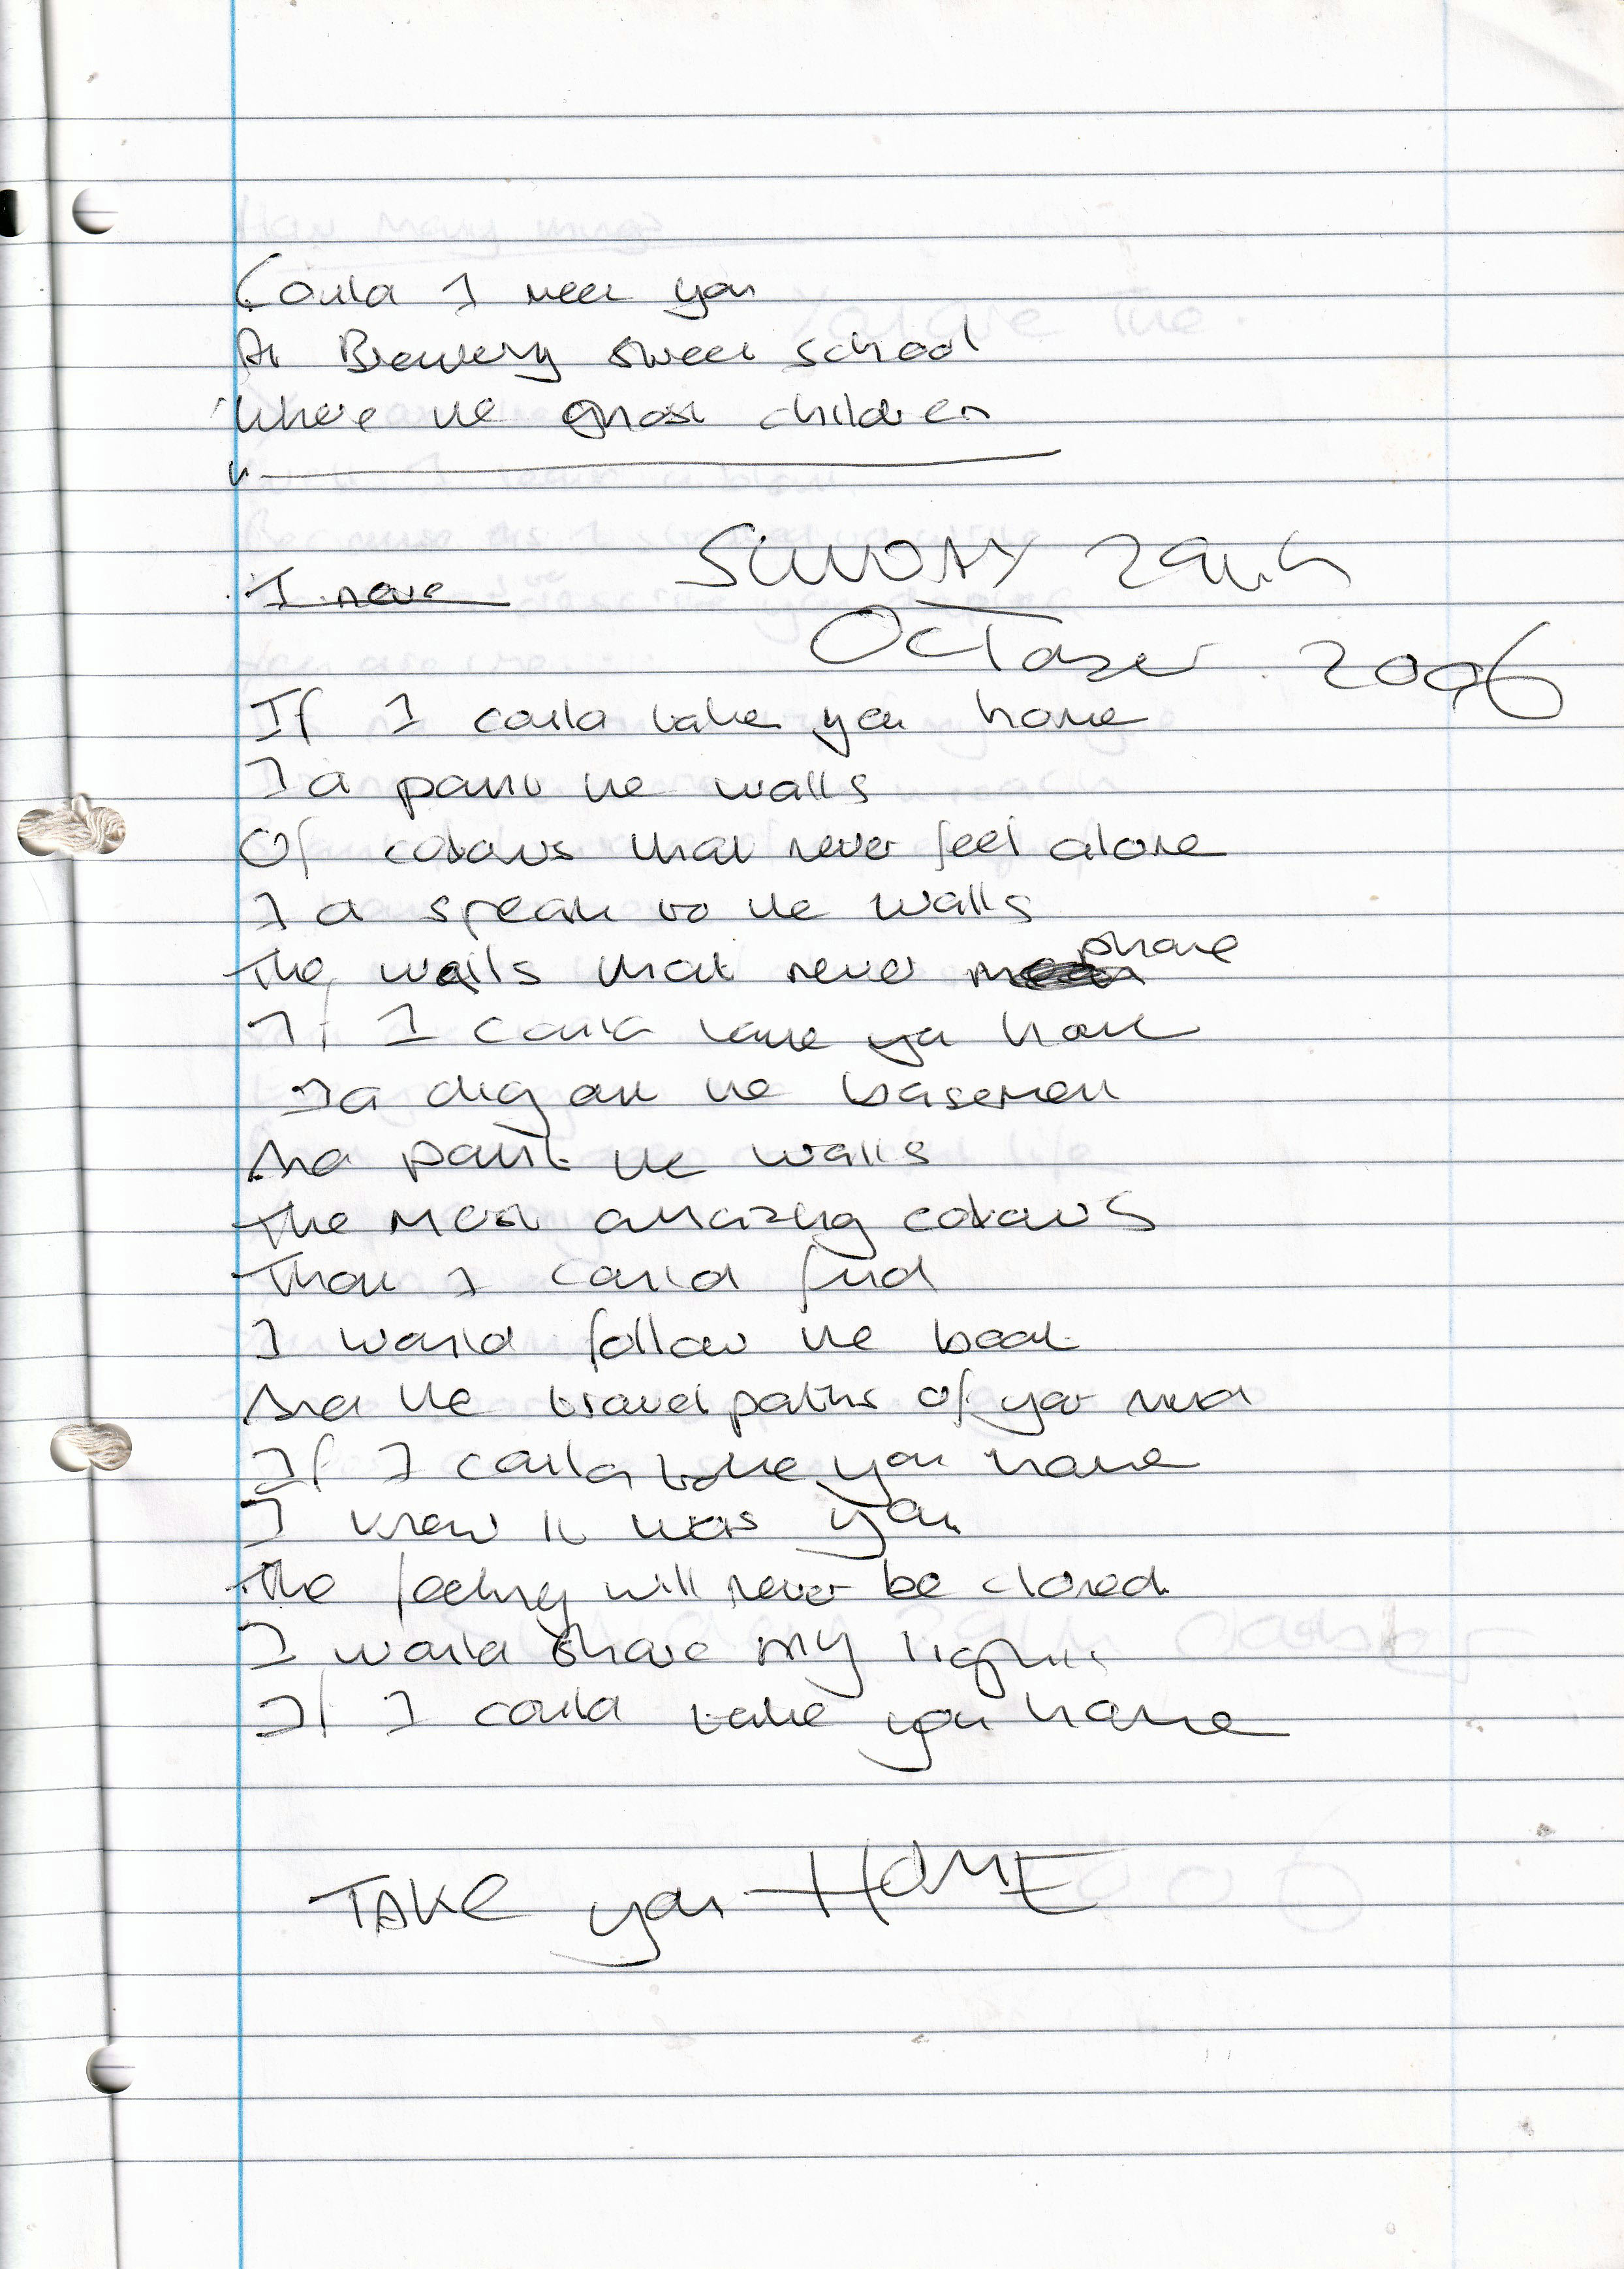 Could I meet you
At Brewery Street school
Where the ghost children
I never
SUNDAY 29th
OCTober 2006
If I could take you home
I'd paint the walls
Of colours that never feel alone
I'd speak to the walls
The walls that never phone
If I could take you home
I'd dig out the basement
And paint the walls
The most amazing colours
That I could find
I would follow the book
And the travel paths of your mind
If I could take you home
I knew it was you
The feeling will never be closed
I would share my light
If I could take you home
TAKE you HOME